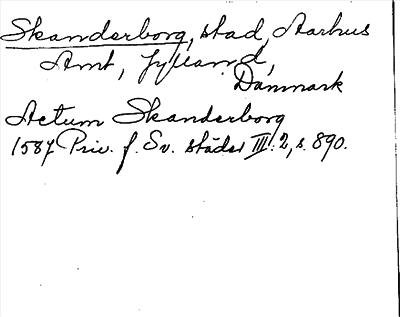 Skanderborg, stad, Aarhus
Amt, Jylland,
Danmark
Actum Skanderborg
1587 Priv. f. Sv. städer III:2, s. 890.